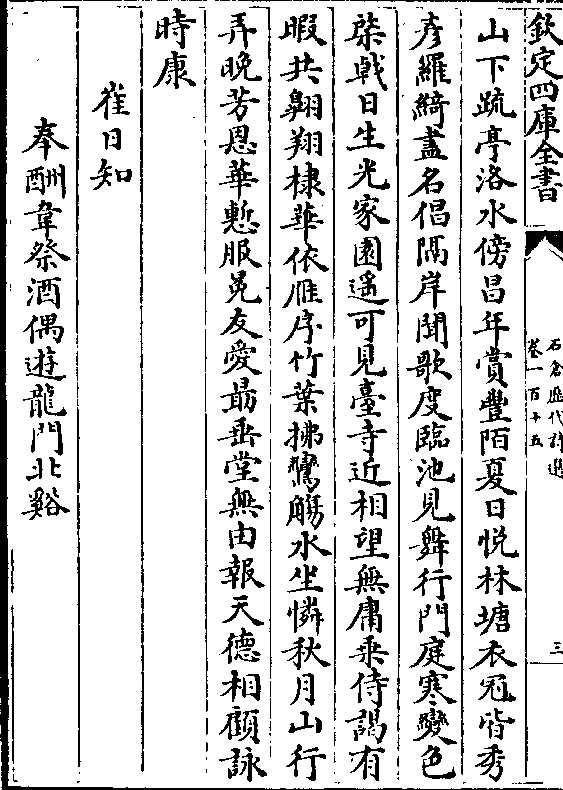 欽定四庫全書
石倉歷代詩選
卷一百十五
三
山下疏亭洛水傍昌年賞豐陌夏日悦林塘衣冠皆秀
彦羅綺盡名倡隔岸聞歌度臨池見舞行門庭寒變色
棨戟日生光家園遥可見臺寺近相望無庸乗侍謁有
暇共翺翔棣華依雁序竹葉拂鸞觴水坐憐秋月山行
弄晚芳恩華慙服冕友愛最垂堂無由報天徳相顧詠
時康
崔日知
奉酬韋祭酒偶遊龍門北谿